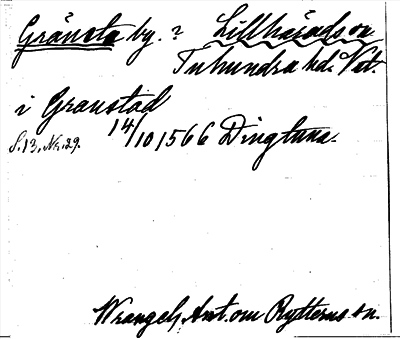 Gränsta by. ? Lillhärads sn.
Tuhundra hd. Vstm.
i Granstad
S. 13, Nr. 29. 14/10 1566 Dingtuna.
Wrangel, Ant. om Rytterns sn.